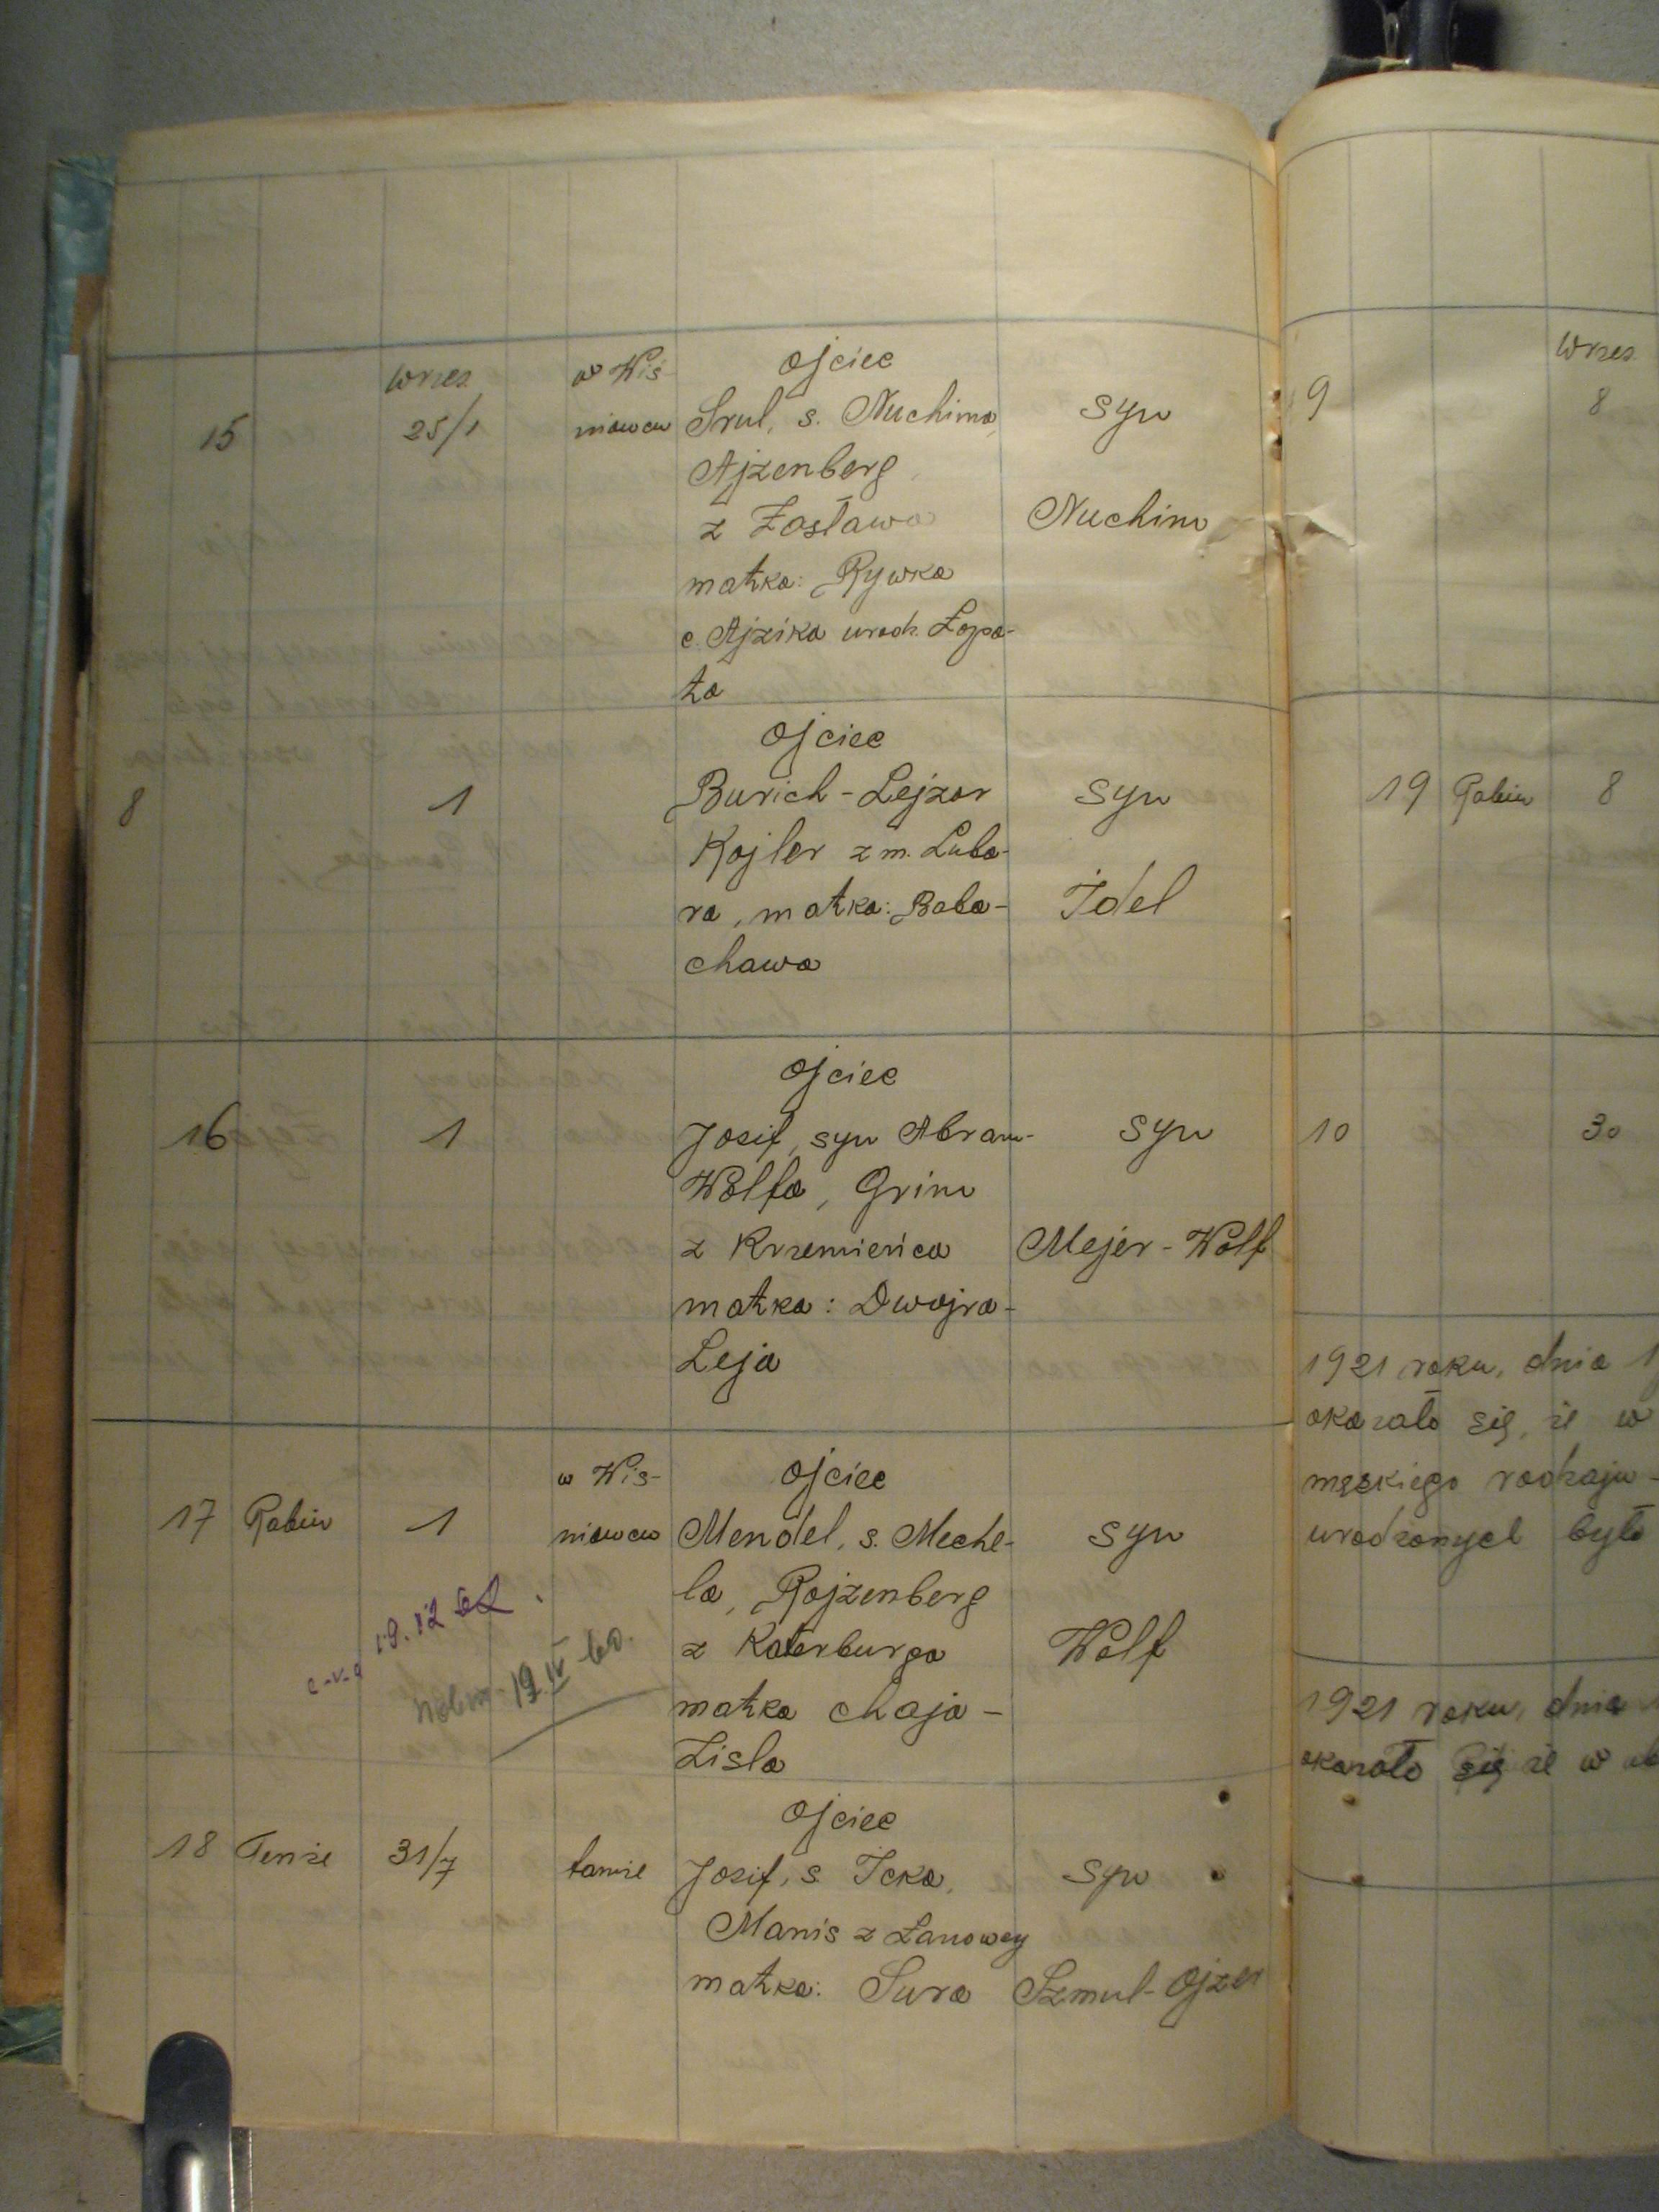 wrzes. w Wiś- ojciec
15 25/1 niowcu Srul, s. Nuchima, syn
Ajzenberg
z Zasława Nuchim
matka: Rywka
c. Ajzika urodz. Łopa-
ta
ojciec
8 1 Burich-Lejzor syn
Kojler z m. Luba-
ra, matka: Baba- Idel
Chawa
ojciec
16 1 Josif, syn Abram- syn
Wolfa, Grim
z Krzemieńca Mejer-Wolf
matka: Dwojra-
Leja
w Wiś- ojciec
17 Rabin 1 niowcu Mendel, s. Meche- syn
la, Rojzenberg
z Katerburga Wolf
matka Chaja-
Zisla
19.12
19 IV 60.
ojciec
18 Tenże 31/7 tamże Josif, s. Icka, syn
Manis z Łanowey
matka: Sura Szmul-Ojzer
wrzes.
9 8
19 Rabin 8
10 30
1921 roku, dnia 1
okazało się, że w
męskiego rodzaju-
urodzonych było
1921 roku, dnia
okazało się że w